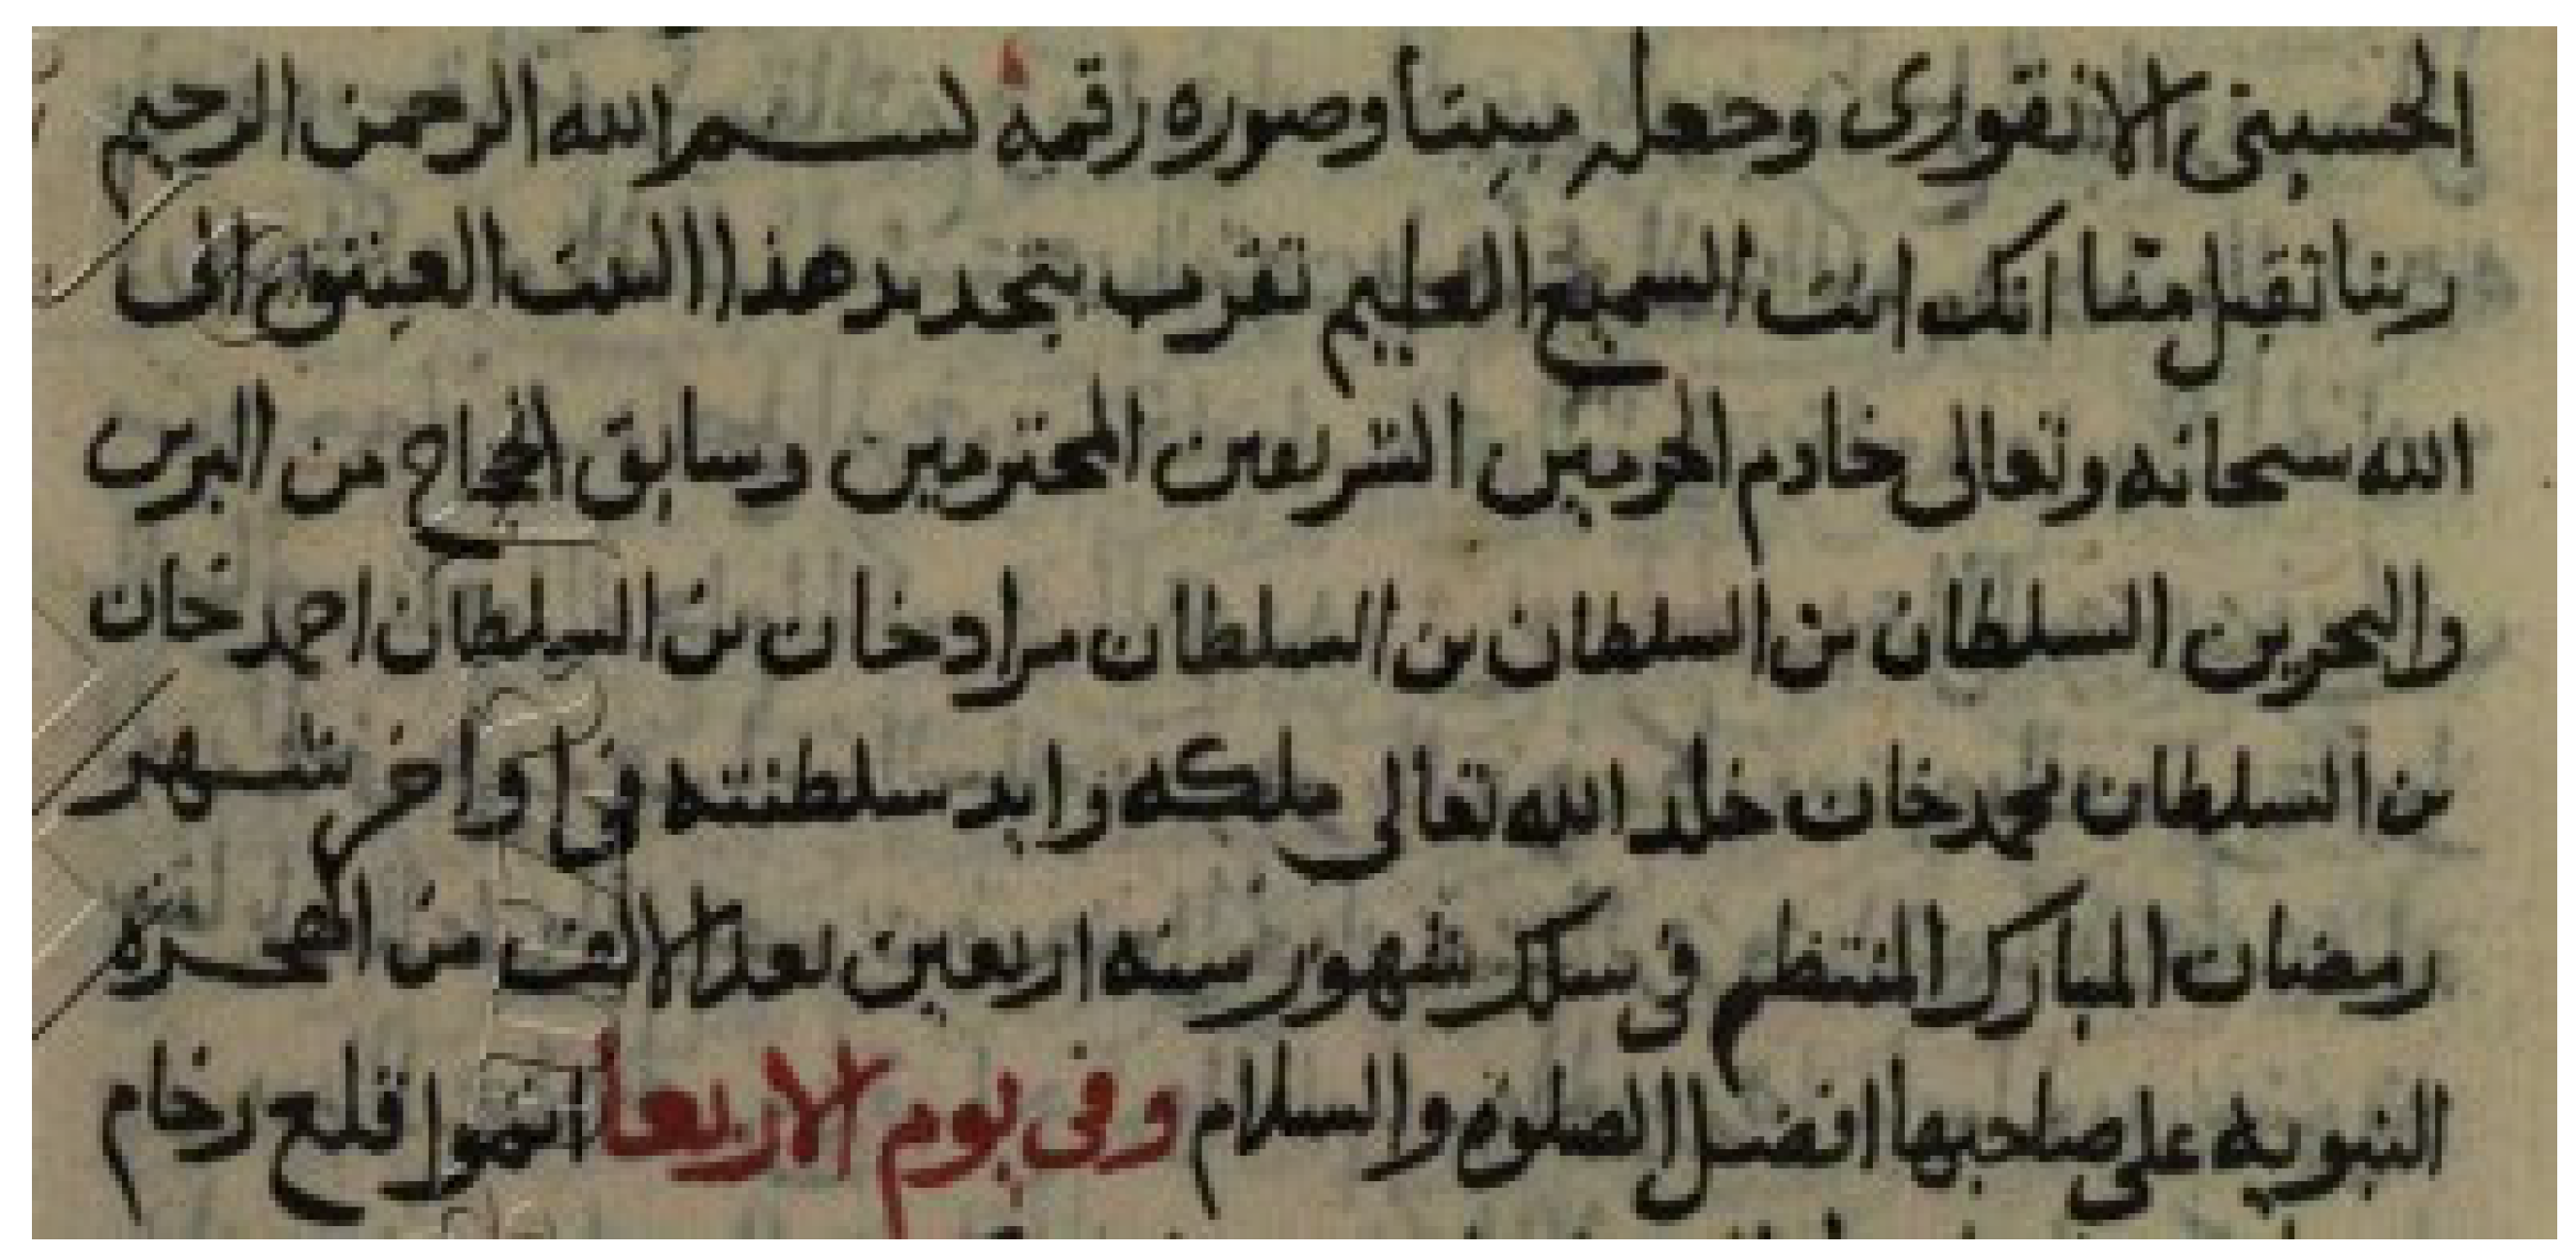 الحسينى الانقوارى وجعله مبيتا وصوره رقمه بسم الله الرحمن الرحيم
ربنا تقبل منا انك انت السميع العليم تقرب بتجديد هذا البيت العتيق الى
الله سبحانه وتعالى خادم الحرمين الشريفين المحترمين وسابق الحجاج من البرين
والبحرين السلطان بن السلطان بن السلطان مراد خان بن السلطان احمد خان
بن السلطان محمد خان خلد الله تعالى ملكه وايد سلطنته فى اواخر شهر
رمضان المبارك المنتظم فى سلك شهور سنه اربعين بعد الالف من الهجرة
النبويه على صاحبها افضل الصلوة والسلام وفى يوم الاربعا اتموا قلع رخام